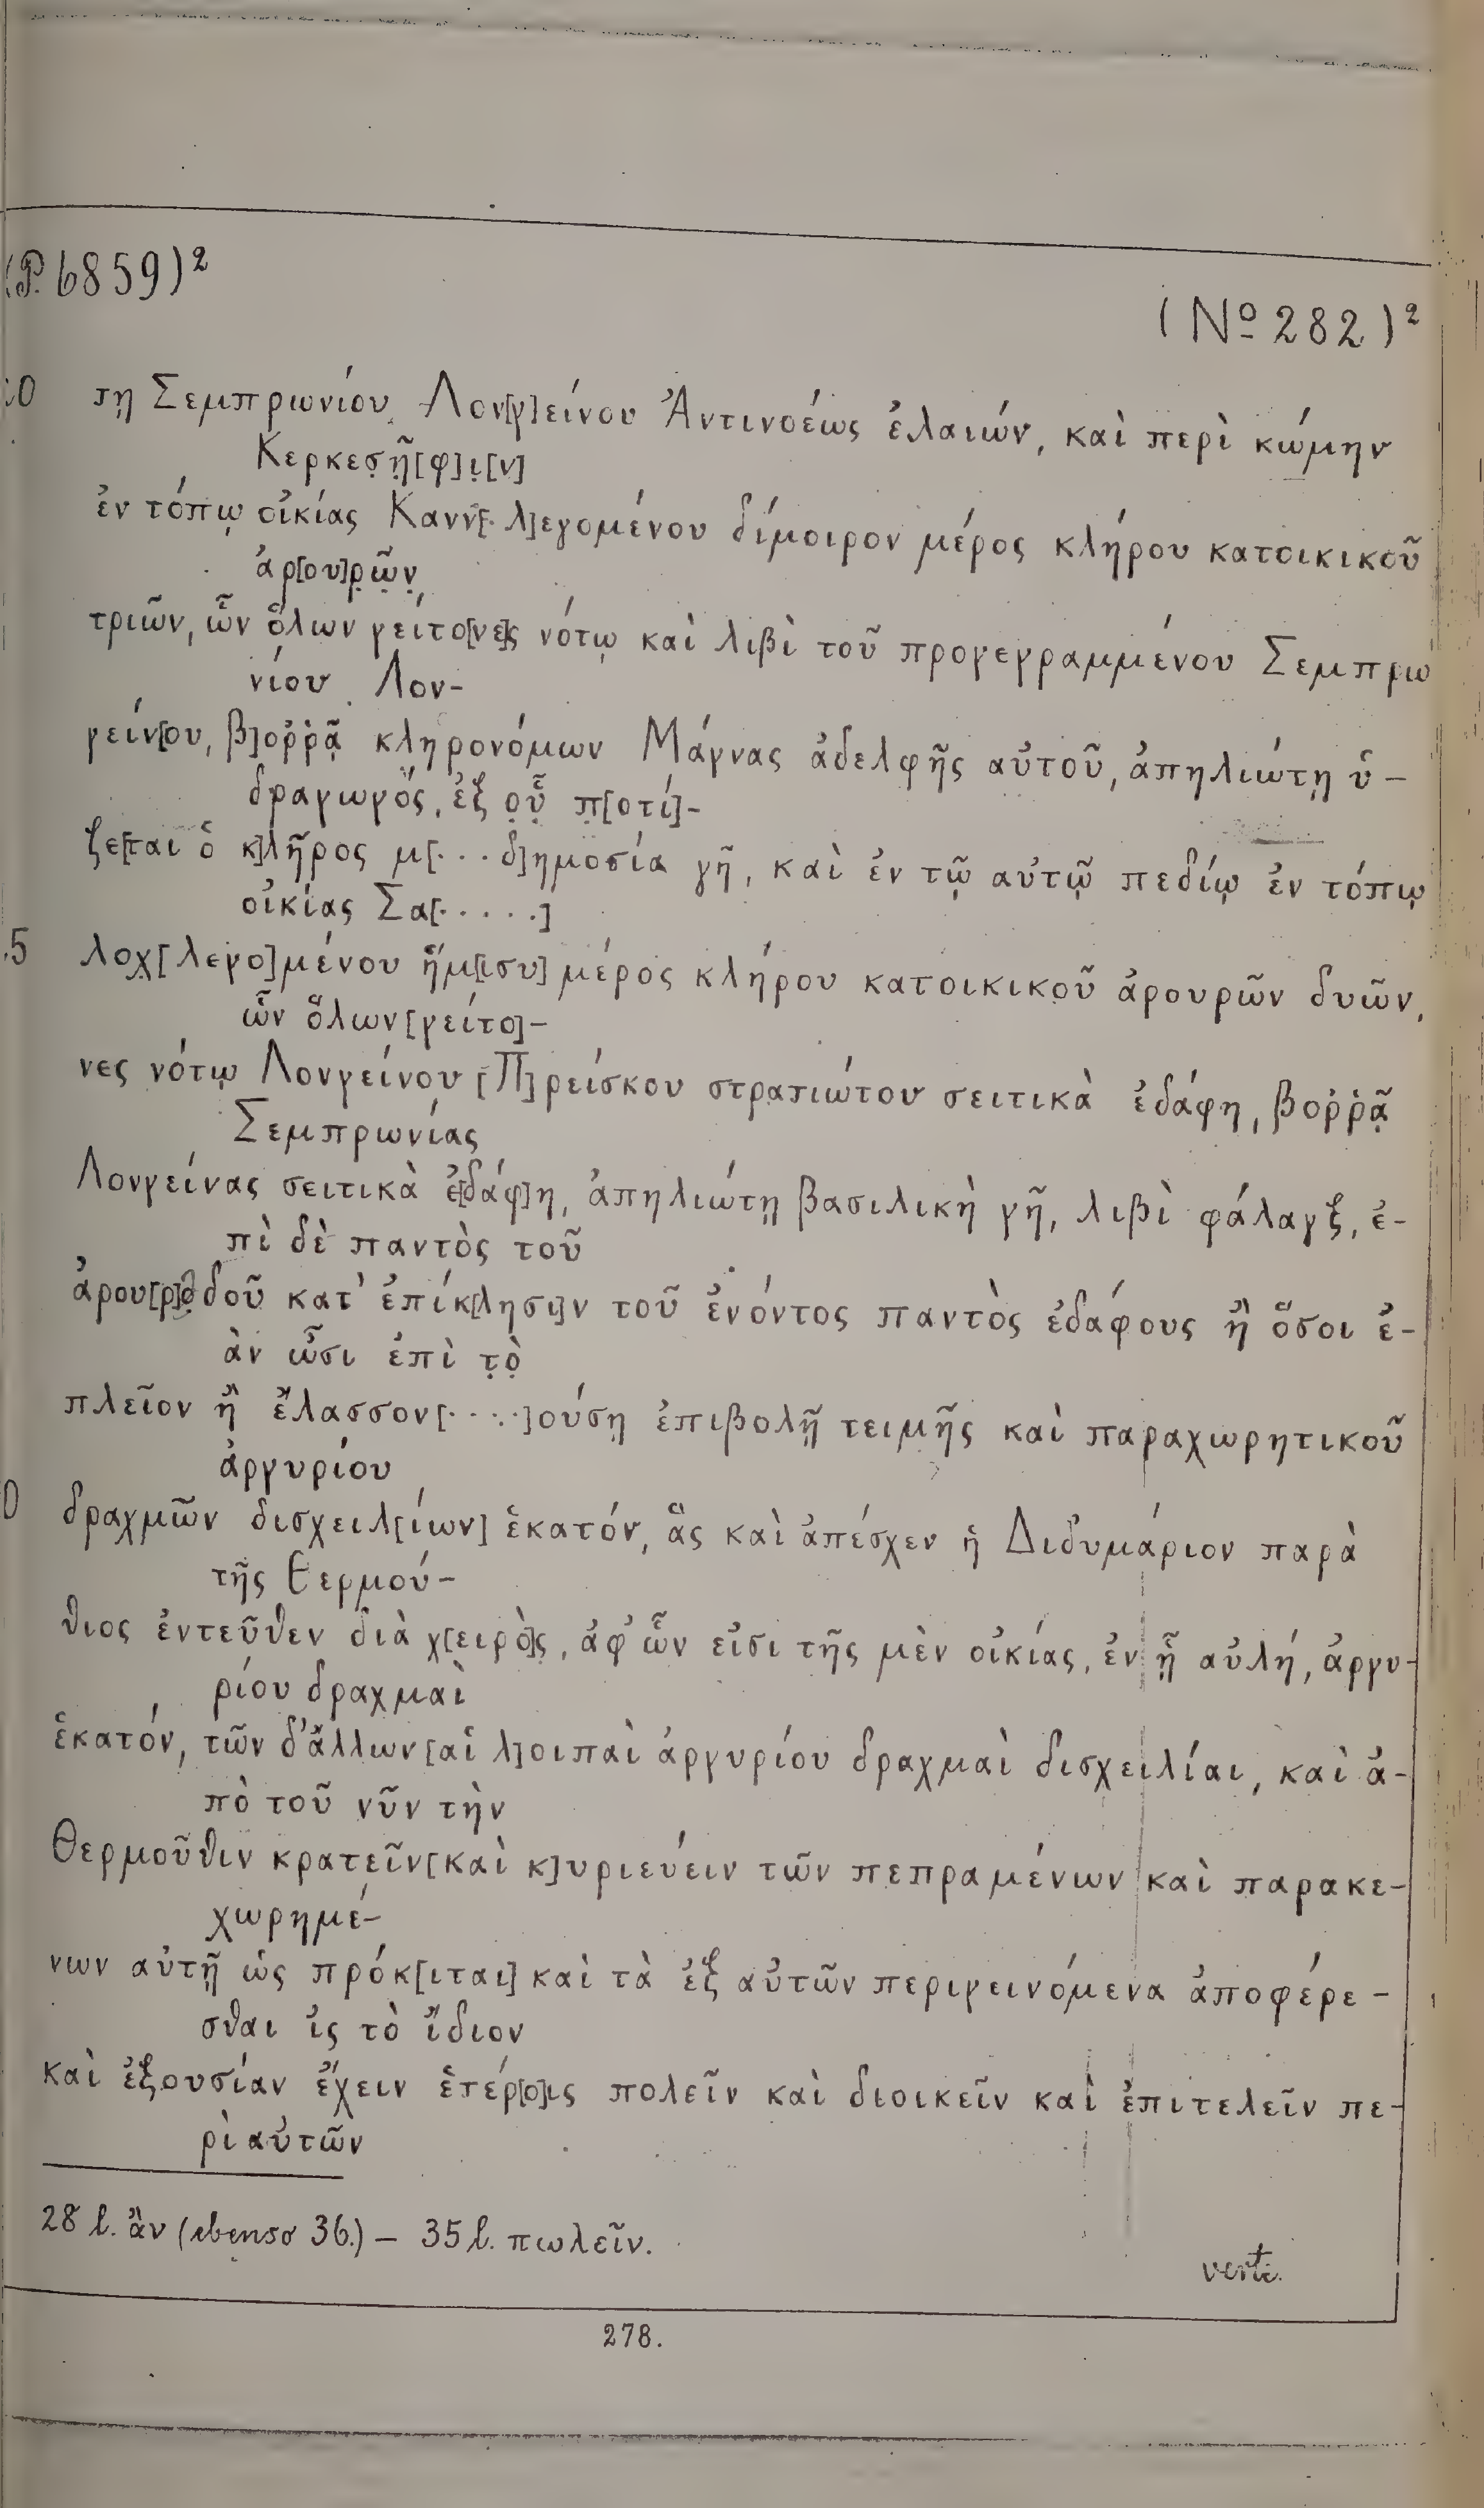 (P. 6859)²
(Nº 282)²
20 τῃ Σεμπρωνίου Λον[γ]είνου Ἀντινοέως ἐλαιών, καὶ περὶ κώμην
Κερκεσῆ[φ]ι[ν]
ἐν τόπῳ οἰκίας Κανν[· λ]εγομένου δίμοιρον μέρος κλήρου κατοικικοῦ
ἀρ[ου]ρῶν
τριῶν, ὧν ὅλων γείτο[νε]ς νότῳ καὶ λιβὶ τοῦ προγεγραμμένου Σεμπρω
νίου Λον-
γείν[ου, β]οῤῥᾷ κληρονόμων Μάγνας ἀδελφῆς αὐτοῦ, ἀπηλιώτῃ ὑ-
δραγωγός, ἐξ οὗ π[οτί]-
ζε[ται ὁ κ]λῆρος μ[··· δ]ημοσία γῆ, καὶ ἐν τῷ αὐτῷ πεδίῳ ἐν τόπῳ
οἰκίας Σα[·····]
25 λοχ[λεγο]μένου ἥμ[ισυ] μέρος κλήρου κατοικικοῦ ἀρουρῶν δυῶν,
ὧν ὅλων [γείτο]-
νες νότῳ Λονγείνου [Π]ρείσκου στρατιώτου σειτικὰ ἐδάφη, βοῤῥᾷ
Σεμπρωνίας
Λονγείνας σειτικὰ ἐ[δάφ]η, ἀπηλιώτῃ βασιλικὴ γῆ, λιβὶ φάλαγξ, ἐ-
πὶ δὲ παντὸς τοῦ
ἀρου[ρ]ηδοῦ κατ' ἐπίκ[λησι]ν τοῦ ἐνόντος παντὸς ἐδάφους ἢ ὅσοι ἐ-
ὰν ὦσι ἐπὶ τὸ
πλεῖον ἢ ἔλασσον[·····]ούσῃ ἐπιβολῇ τειμῆς καὶ παραχωρητικοῦ
ἀργυρίου
0 δραχμῶν δισχειλ[ίων] ἑκατόν, ἃς καὶ ἀπέσχεν ἡ Διδυμάριον παρὰ
τῆς Θερμού-
θιος ἐντεῦθεν διὰ χ[ειρὸ]ς, ἀφ' ὧν εἰσι τῆς μὲν οἰκίας, ἐν ᾗ αὐλή, ἀργυ-
ρίου δραχμαὶ
ἑκατόν, τῶν δ' ἄλλων [αἱ λ]οιπαὶ ἀργυρίου δραχμαὶ δισχειλίαι, καὶ ἀ-
πὸ τοῦ νῦν τὴν
Θερμοῦθιν κρατεῖν [καὶ κ]υριεύειν τῶν πεπραμένων καὶ παρακε-
χωρημέ-
νων αὐτῇ ὡς πρόκ[ιται] καὶ τὰ ἐξ αὐτῶν περιγεινόμενα ἀποφέρε-
σθαι ἰς τὸ ἴδιον
καὶ ἐξουσίαν ἔχειν ἑτέρ[ο]ις πολεῖν καὶ διοικεῖν καὶ ἐπιτελεῖν πε-
ρὶ αὐτῶν
28 l. ἂν (ebenso 36.) – 35 l. πωλεῖν.
verte.
278.